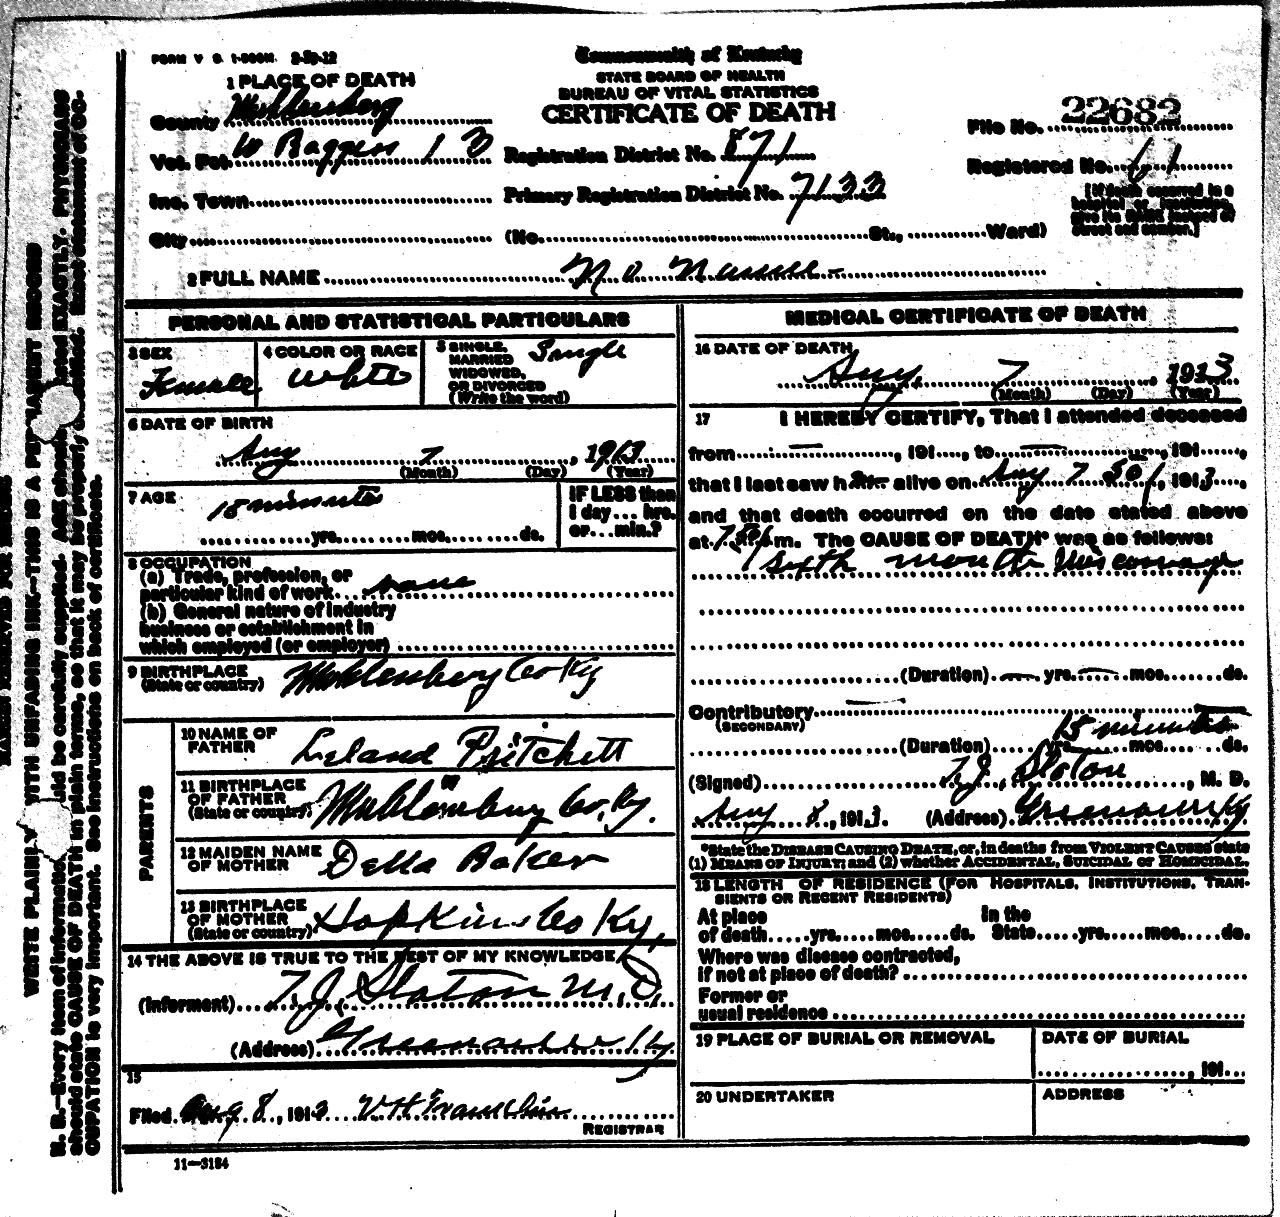 FORM V S. 1-500M. 2-29-12
Commonwealth of Kentucky
STATE BOARD OF HEALTH
BUREAU OF VITAL STATISTICS
CERTIFICATE OF DEATH
1 PLACE OF DEATH
County Muhlenberg
Vot. Pct. W 13
Inc. Town
City
(No. St., Ward)
Registration District No. 871
Primary Registration District No. 7133
File No. 22682
Registered No. 61
[If death occurred in a
hospital or institution,
give its NAME instead of
street and number.]
2 FULL NAME No Name
PERSONAL AND STATISTICAL PARTICULARS
3 SEX
Female
4 COLOR OR RACE
White
5 SINGLE,
MARRIED
WIDOWED,
OR DIVORCED
(Write the word)
Single
6 DATE OF BIRTH
Aug 7, 1913
(Month) (Day) (Year)
7 AGE
15 minutes
yrs. mos. ds.
IF LESS than
1 day... hrs.
or...min.?
8 OCCUPATION
(a) Trade, profession, or
particular kind of work none
(b) General nature of industry
business or establishment in
which employed (or employer)
9 BIRTHPLACE
(State or country)
Muhlenberg Co Ky
PARENTS
10 NAME OF
FATHER
Leland Pritchett
11 BIRTHPLACE
OF FATHER
(State or country)
Muhlenburg Co. Ky.
12 MAIDEN NAME
OF MOTHER
Della Baker
13 BIRTHPLACE
OF MOTHER
(State or country)
Hopkins Co Ky.
14 THE ABOVE IS TRUE TO THE BEST OF MY KNOWLEDGE
(Informant) T.J. Slaton M.D.
(Address) Greenville Ky
15
Filed Aug 8, 1913 V H Franklin
REGISTRAR
11—3184
MEDICAL CERTIFICATE OF DEATH
16 DATE OF DEATH
Aug 7, 1913
(Month) (Day) (Year)
17 I HEREBY CERTIFY, That I attended deceased
from — , 191 , to — , 191 ,
that I last saw her alive on Aug 7, 1913,
and that death occurred on the date stated above
at 7 P m. The CAUSE OF DEATH* was as follows:
Sixth month Miscarriage
(Duration) — yrs. — mos. ds.
Contributory —
(SECONDARY)
15 minutes
(Duration) yrs. mos. ds.
(Signed) T.J. Slaton, M. D.
Aug 8, 1913. (Address) Greenville Ky
*State the DISEASE CAUSING DEATH, or, in deaths from VIOLENT CAUSES state
(1) MEANS OF INJURY; and (2) whether ACCIDENTAL, SUICIDAL or HOMICIDAL.
18 LENGTH OF RESIDENCE (FOR HOSPITALS, INSTITUTIONS, TRAN-
SIENTS OR RECENT RESIDENTS)
At place
of death.....yrs.....mos.....ds.
In the
State.....yrs.....mos.....ds.
Where was disease contracted,
if not at place of death?
Former or
usual residence
19 PLACE OF BURIAL OR REMOVAL
DATE OF BURIAL
, 191
20 UNDERTAKER
ADDRESS
MARGIN RESERVED FOR BINDING
WRITE PLAINLY WITH UNFADING INK—THIS IS A PERMANENT RECORD
N. B.—Every item of information should be carefully supplied. AGE should be stated EXACTLY. PHYSICIANS
should state CAUSE OF DEATH in plain terms, so that it may be properly classified. Exact statement of OC-
CUPATION is very important. See instructions on back of certificate.